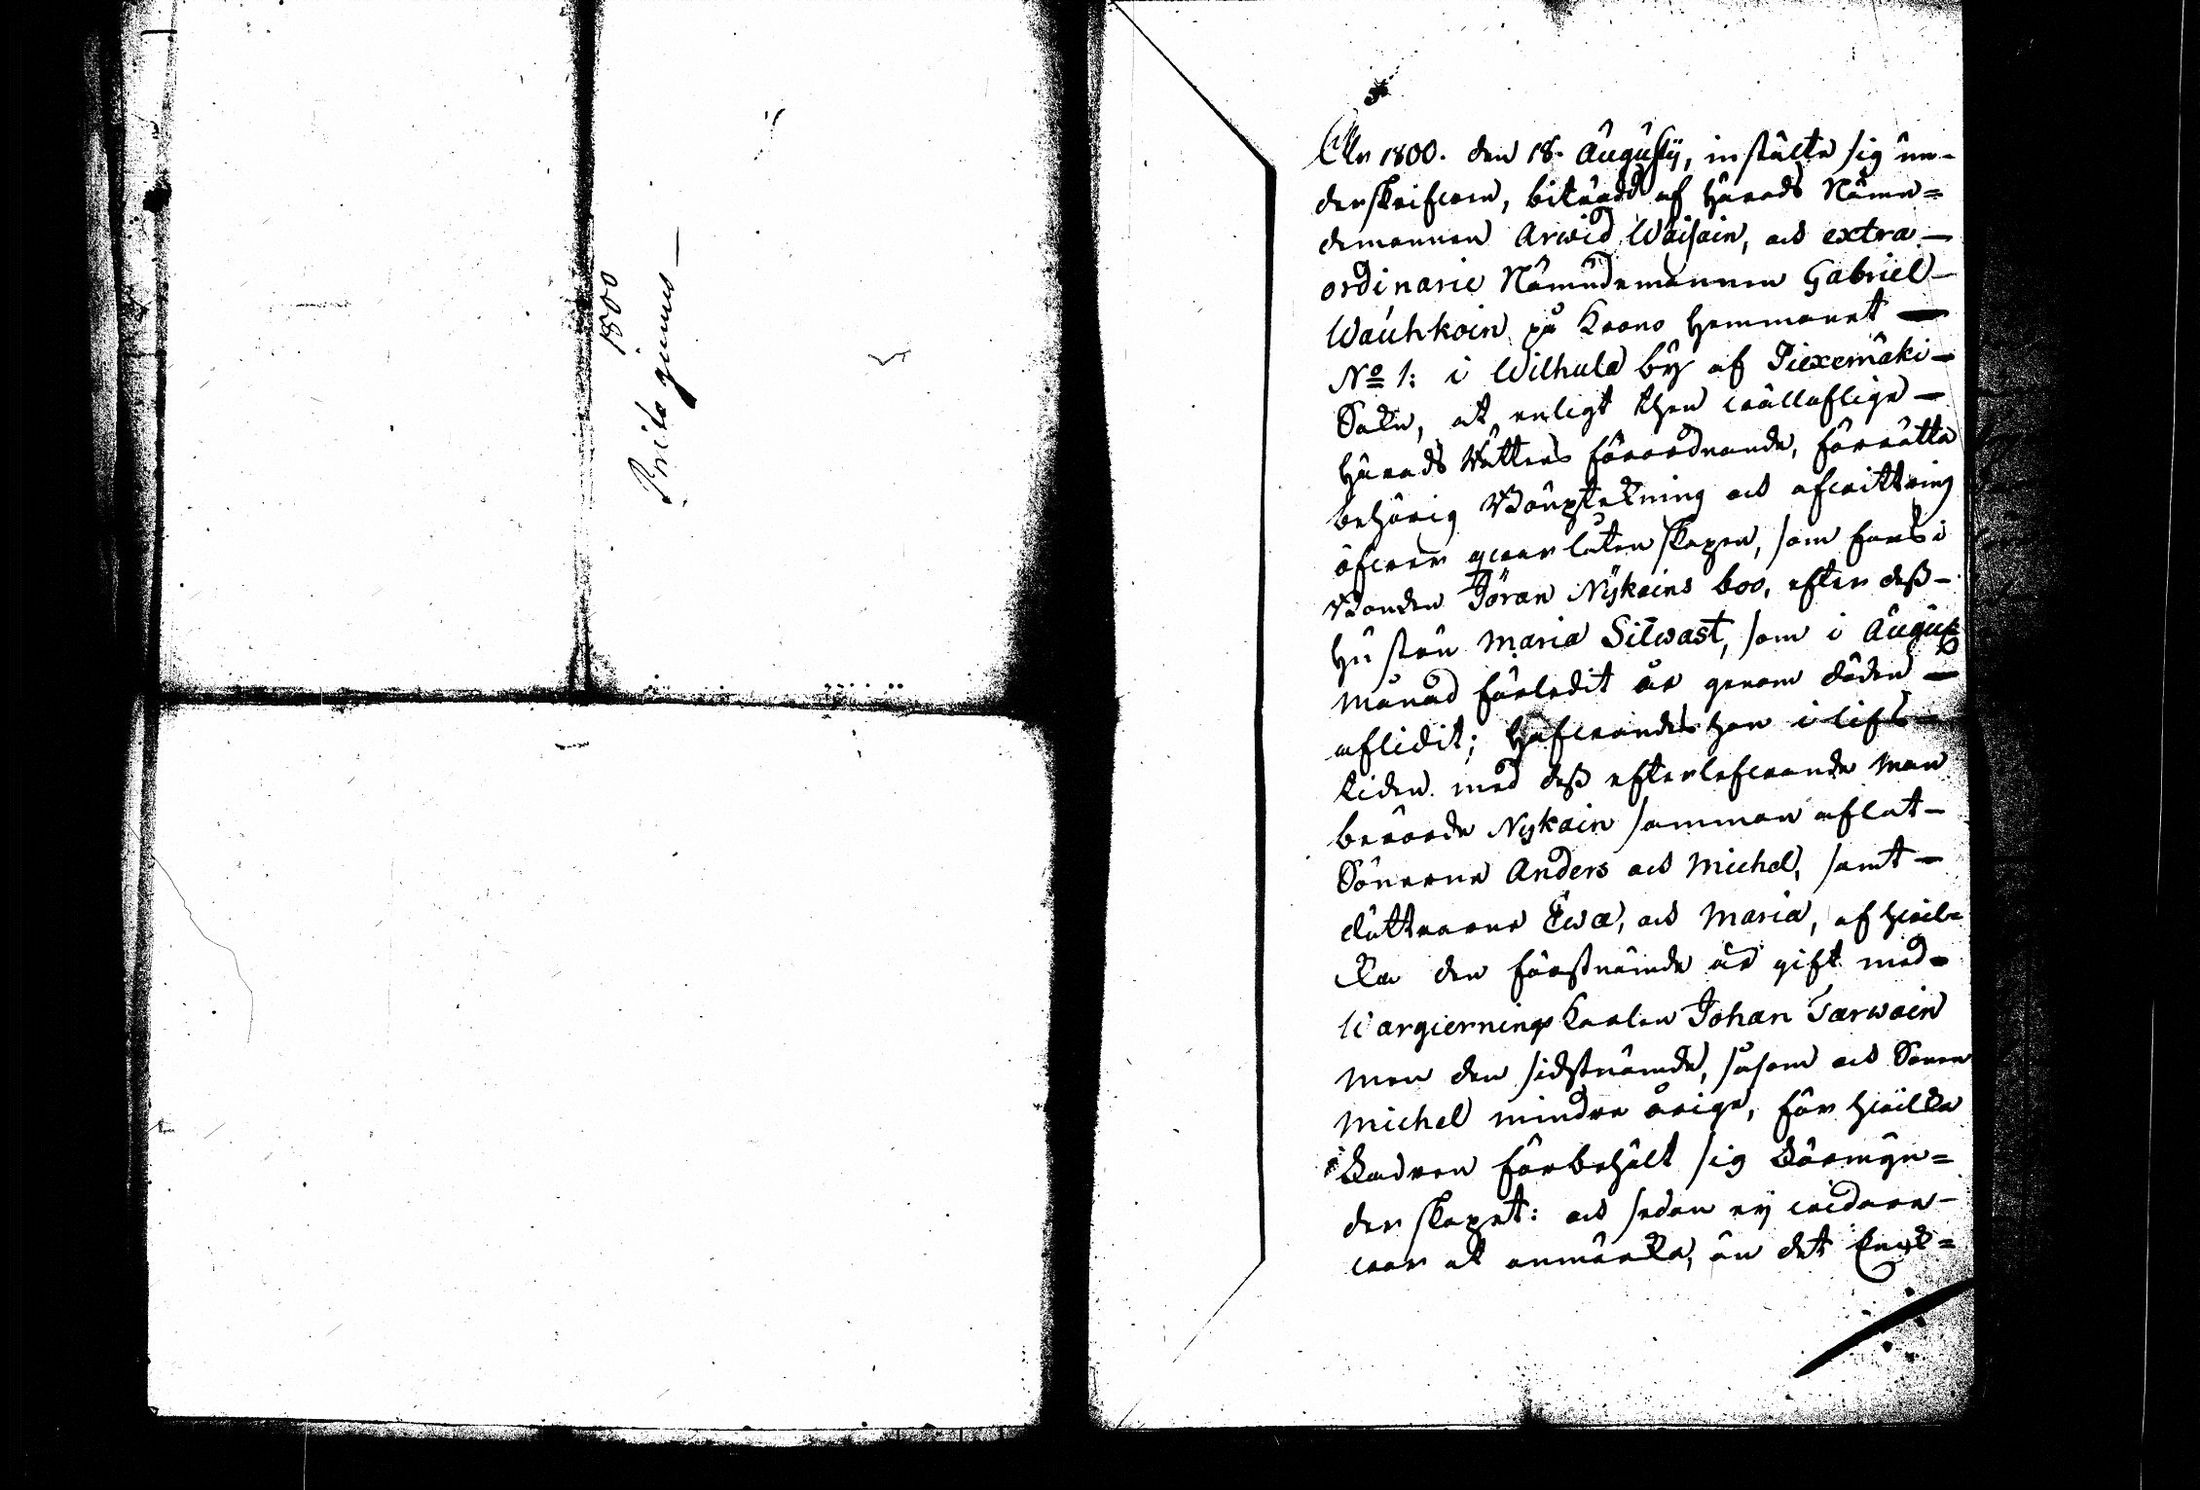 1800
År 1800. den 18. Augusty, instälte sig un-
derskrifven, biträdd af Härads Nämn=
demannen Arwid Wäisäin, och extra
ordinarie Nämndemannen Gabriel
Wauhkoin på Krono Hemmanet
No 1: i Wilhula by af Piexemäki
Sokn, at enligt then wällofliga
Härads Rättens förordnande, förrätta
behörig Bouptekning och afwittring
öfwer qwarlåtenskapen, som fans i
Bonden Jöran Nykäins boo, efter dess
Hustru Maria Silwast, som i Augusti
Månad förledit år genom döden
aflidit; Hafwandes hon i lifs-
tiden med dess efterlefwande Man
berörde Nykäin samman aflat
Sönerne Anders och Michel, samt
döttrarne Ewa, och Maria, af hwil-
ka den förstnämde är gift med
Wargiernings Karlen Johan Tarwain
Men den sidstnämde, såsom och Sonen
Michel mindre åriga, för hwilka
Fadren förbehölt sig Förmyn=
derskapet: och sedan ey widare
war at anmärka, än det Enck=